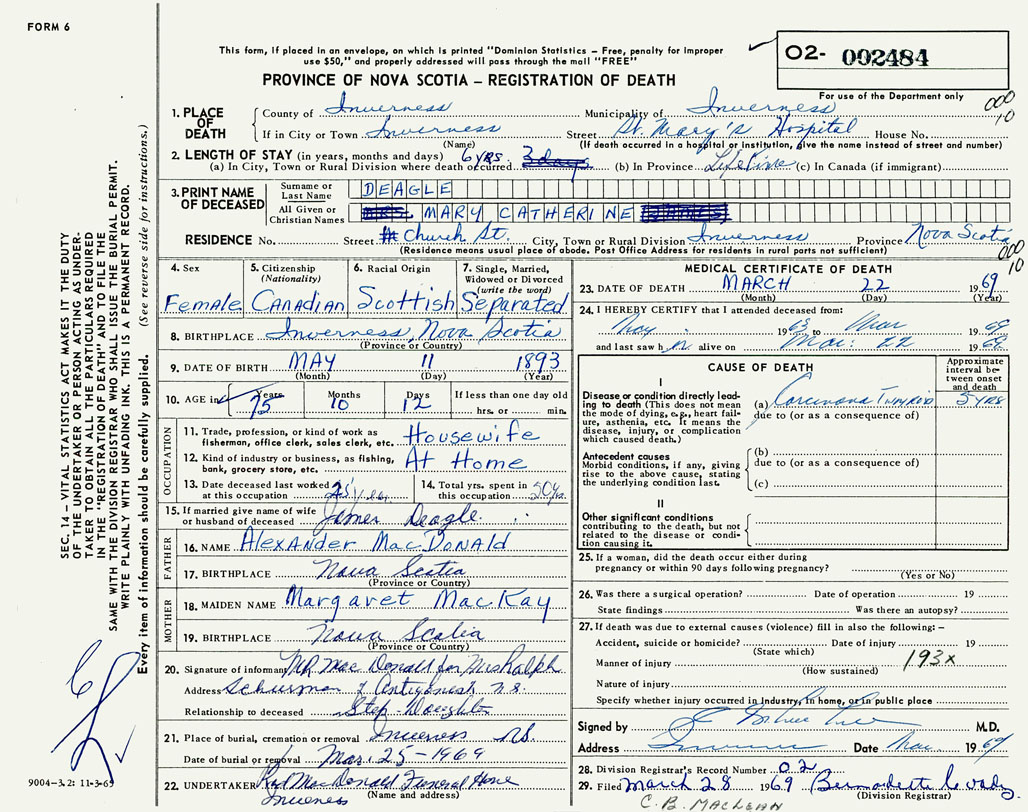 FORM 6
This form, if placed in an envelope, on which is printed "Dominion Statistics – Free, penalty for improper
use $50," and properly addressed will pass through the mail "FREE"
O2- 002484
PROVINCE OF NOVA SCOTIA – REGISTRATION OF DEATH
For use of the Department only
000
10
1. PLACE OF DEATH
County of Inverness Municipality of Inverness
If in City or Town Inverness Street St. Mary's Hospital House No.
(Name) (If death occurred in a hospital or institution, give the name instead of street and number)
2. LENGTH OF STAY (in years, months and days) 6 yrs
(a) In City, Town or Rural Division where death occurred 3 days (b) In Province Lifetime (c) In Canada (if immigrant)
3. PRINT NAME OF DECEASED
Surname or Last Name DEAGLE
All Given or Christian Names MRS. MARY CATHERINE
RESIDENCE No. Street Church St. City, Town or Rural Division Inverness Province Nova Scotia
(Residence means usual place of abode. Post Office Address for residents in rural parts not sufficient)
000
10
4. Sex Female
5. Citizenship (Nationality) Canadian
6. Racial Origin Scottish
7. Single, Married, Widowed or Divorced (write the word) Separated
8. BIRTHPLACE Inverness, Nova Scotia
(Province or Country)
9. DATE OF BIRTH MAY 11 1893
(Month) (Day) (Year)
10. AGE in Years 75 Months 10 Days 12 If less than one day old
hrs. or min.
OCCUPATION
11. Trade, profession, or kind of work as fisherman, office clerk, sales clerk, etc. Housewife
12. Kind of industry or business, as fishing, bank, grocery store, etc. At Home
13. Date deceased last worked at this occupation
14. Total yrs. spent in this occupation 50 yrs.
15. If married give name of wife or husband of deceased James Deagle
FATHER
16. NAME Alexander MacDonald
17. BIRTHPLACE Nova Scotia
(Province or Country)
MOTHER
18. MAIDEN NAME Margaret MacKay
19. BIRTHPLACE Nova Scotia
(Province or Country)
20. Signature of informant MR MacDonald for Mrs Ralph
Address Schurman Antigonish N.S.
Relationship to deceased Step-Daughter
21. Place of burial, cremation or removal Inverness N.S.
Date of burial or removal Mar. 25 – 1969
22. UNDERTAKER Rod MacDonald Funeral Home
Inverness (Name and address)
MEDICAL CERTIFICATE OF DEATH
23. DATE OF DEATH MARCH 22 1969
(Month) (Day) (Year)
24. I HEREBY CERTIFY that I attended deceased from:
May 1963 to Mar 1969
and last saw h alive on Mar. 22 1969
CAUSE OF DEATH
Approximate interval between onset and death
I
Disease or condition directly leading to death (This does not mean the mode of dying, e.g., heart failure, asthenia, etc. It means the disease, injury, or complication which caused death.)
(a) Carcinoma Thyroid 5 yrs
due to (or as a consequence of)
Antecedent causes
Morbid conditions, if any, giving rise to the above cause, stating the underlying condition last.
(b)
due to (or as a consequence of)
(c)
II
Other significant conditions contributing to the death, but not related to the disease or condition causing it.
25. If a woman, did the death occur either during pregnancy or within 90 days following pregnancy?
(Yes or No)
26. Was there a surgical operation? Date of operation 19
State findings Was there an autopsy?
27. If death was due to external causes (violence) fill in also the following: –
Accident, suicide or homicide? Date of injury 19
(State which)
Manner of injury 193x
(How sustained)
Nature of injury
Specify whether injury occurred in Industry, in home, or in public place
Signed by M.D.
Address Inverness Date Mar. 1969
28. Division Registrar's Record Number 02
29. Filed March 28 1969 Bernadette
(Division Registrar)
C. B. MACLEAN
SEC. 14 – VITAL STATISTICS ACT MAKES IT THE DUTY
OF THE UNDERTAKER OR PERSON ACTING AS UNDER-
TAKER TO OBTAIN ALL THE PARTICULARS REQUIRED
IN THE "REGISTRATION OF DEATH" AND TO FILE THE
SAME WITH THE DIVISION REGISTRAR WHO SHALL ISSUE THE BURIAL PERMIT.
WRITE PLAINLY WITH UNFADING INK. THIS IS A PERMANENT RECORD.
Every item of information should be carefully supplied. (See reverse side for instructions.)
9004–3.2: 11-3-65